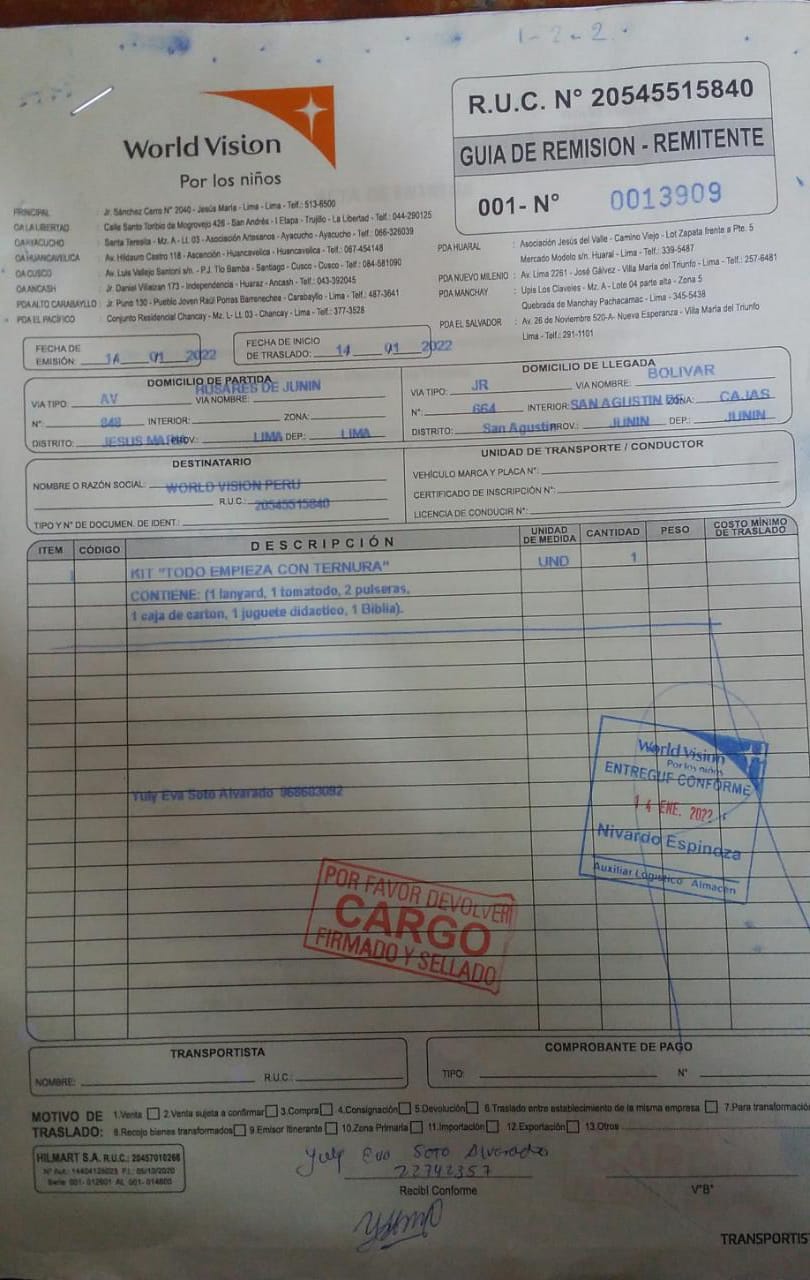 1-2-2
World Vision
Por los niños
R.U.C. N° 20545515840
GUIA DE REMISION - REMITENTE
001- N° 0013909
PRINCIPAL : Jr. Sánchez Cerro N° 2040 - Jesús María - Lima - Lima - Telf.: 513-6500
OA LA LIBERTAD : Calle Santo Toribio de Mogrovejo 426 - San Andrés - I Etapa - Trujillo - La Libertad - Telf.: 044-290125
OA AYACUCHO : Santa Teresita - Mz. A - Lt. 03 - Asociación Artesanos - Ayacucho - Ayacucho - Telf.: 066-326039
OA HUANCAVELICA : Av. Hildauro Castro 118 - Ascención - Huancavelica - Huancavelica - Telf.: 067-454148
OA CUSCO : Av. Luis Vallejo Santoni s/n. - P.J. Tío Bamba - Santiago - Cusco - Cusco - Telf.: 084-581090
OA ANCASH : Jr. Daniel Villaizan 173 - Independencia - Huaraz - Ancash - Telf.: 043-392045
PDA ALTO CARABAYLLO : Jr. Puno 130 - Pueblo Joven Raúl Porras Barrenechea - Carabayllo - Lima - Telf.: 487-3641
PDA EL PACÍFICO : Conjunto Residencial Chancay - Mz. L- Lt. 03 - Chancay - Lima - Telf.: 377-3528
PDA HUARAL : Asociación Jesús del Valle - Camino Viejo - Lot Zapata frente a Pte. 5
Mercado Modelo s/n. Huaral - Lima - Telf.: 339-5487
PDA NUEVO MILENIO : Av. Lima 2261 - José Gálvez - Villa María del Triunfo - Lima - Telf.: 257-6481
PDA MANCHAY : Upis Los Claveles - Mz. A - Lote 04 parte alta - Zona 5
Quebrada de Manchay Pachacamac - Lima - 345-5438
PDA EL SALVADOR : Av. 26 de Noviembre 520-A- Nueva Esperanza - Villa María del Triunfo
Lima - Telf.: 291-1101
FECHA DE EMISIÓN: 14 01 2022
FECHA DE INICIO DE TRASLADO: 14 01 2022
DOMICILIO DE PARTIDA
VIA TIPO: AV VIA NOMBRE: HUSARES DE JUNIN
N°: 848 INTERIOR: ZONA:
DISTRITO: JESUS MARIA PROV.: LIMA DEP.: LIMA
DOMICILIO DE LLEGADA
VIA TIPO: JR VIA NOMBRE: BOLIVAR
N°: 664 INTERIOR: SAN AGUSTIN DE ZONA: CAJAS
DISTRITO: San Agustin PROV.: JUNIN DEP.: JUNIN
DESTINATARIO
NOMBRE O RAZÓN SOCIAL: WORLD VISION PERU
R.U.C.: 20545515840
TIPO Y N° DE DOCUMEN. DE IDENT.:
UNIDAD DE TRANSPORTE / CONDUCTOR
VEHÍCULO MARCA Y PLACA N°:
CERTIFICADO DE INSCRIPCIÓN N°:
LICENCIA DE CONDUCIR N°:
ITEM CÓDIGO DESCRIPCIÓN UNIDAD DE MEDIDA CANTIDAD PESO COSTO MÍNIMO DE TRASLADO
1 KIT "TODO EMPIEZA CON TERNURA" UND 1
CONTIENE: (1 lanyard, 1 tomatodo, 2 pulseras,
1 caja de carton, 1 juguete didactico, 1 Biblia).
World Vision
Por los niños
ENTREGUE CONFORME
14 ENE. 2022
Nivardo Espinoza
Auxiliar Logístico Almacén
Yuly Eva Soto Alvarado 968603092
POR FAVOR DEVOLVER
CARGO
FIRMADO Y SELLADO
TRANSPORTISTA
NOMBRE: R.U.C.:
COMPROBANTE DE PAGO
TIPO: N°
MOTIVO DE TRASLADO:
1.Venta 2.Venta sujeta a confirmar 3.Compra 4.Consignación 5.Devolución 6.Traslado entre establecimiento de la misma empresa 7.Para transformación
8.Recojo bienes transformados 9.Emisor Itinerante 10.Zona Primaria 11.Importación 12.Exportación 13.Otros
HILMART S.A. R.U.C.: 20457010266
N° Aut.: 14404126023 F.I.: 05/10/2020
Serie 001- 012601 AL 001- 014600
Yuly Eva Soto Alvarado
22742357
Recibí Conforme
V°B°
TRANSPORTIS